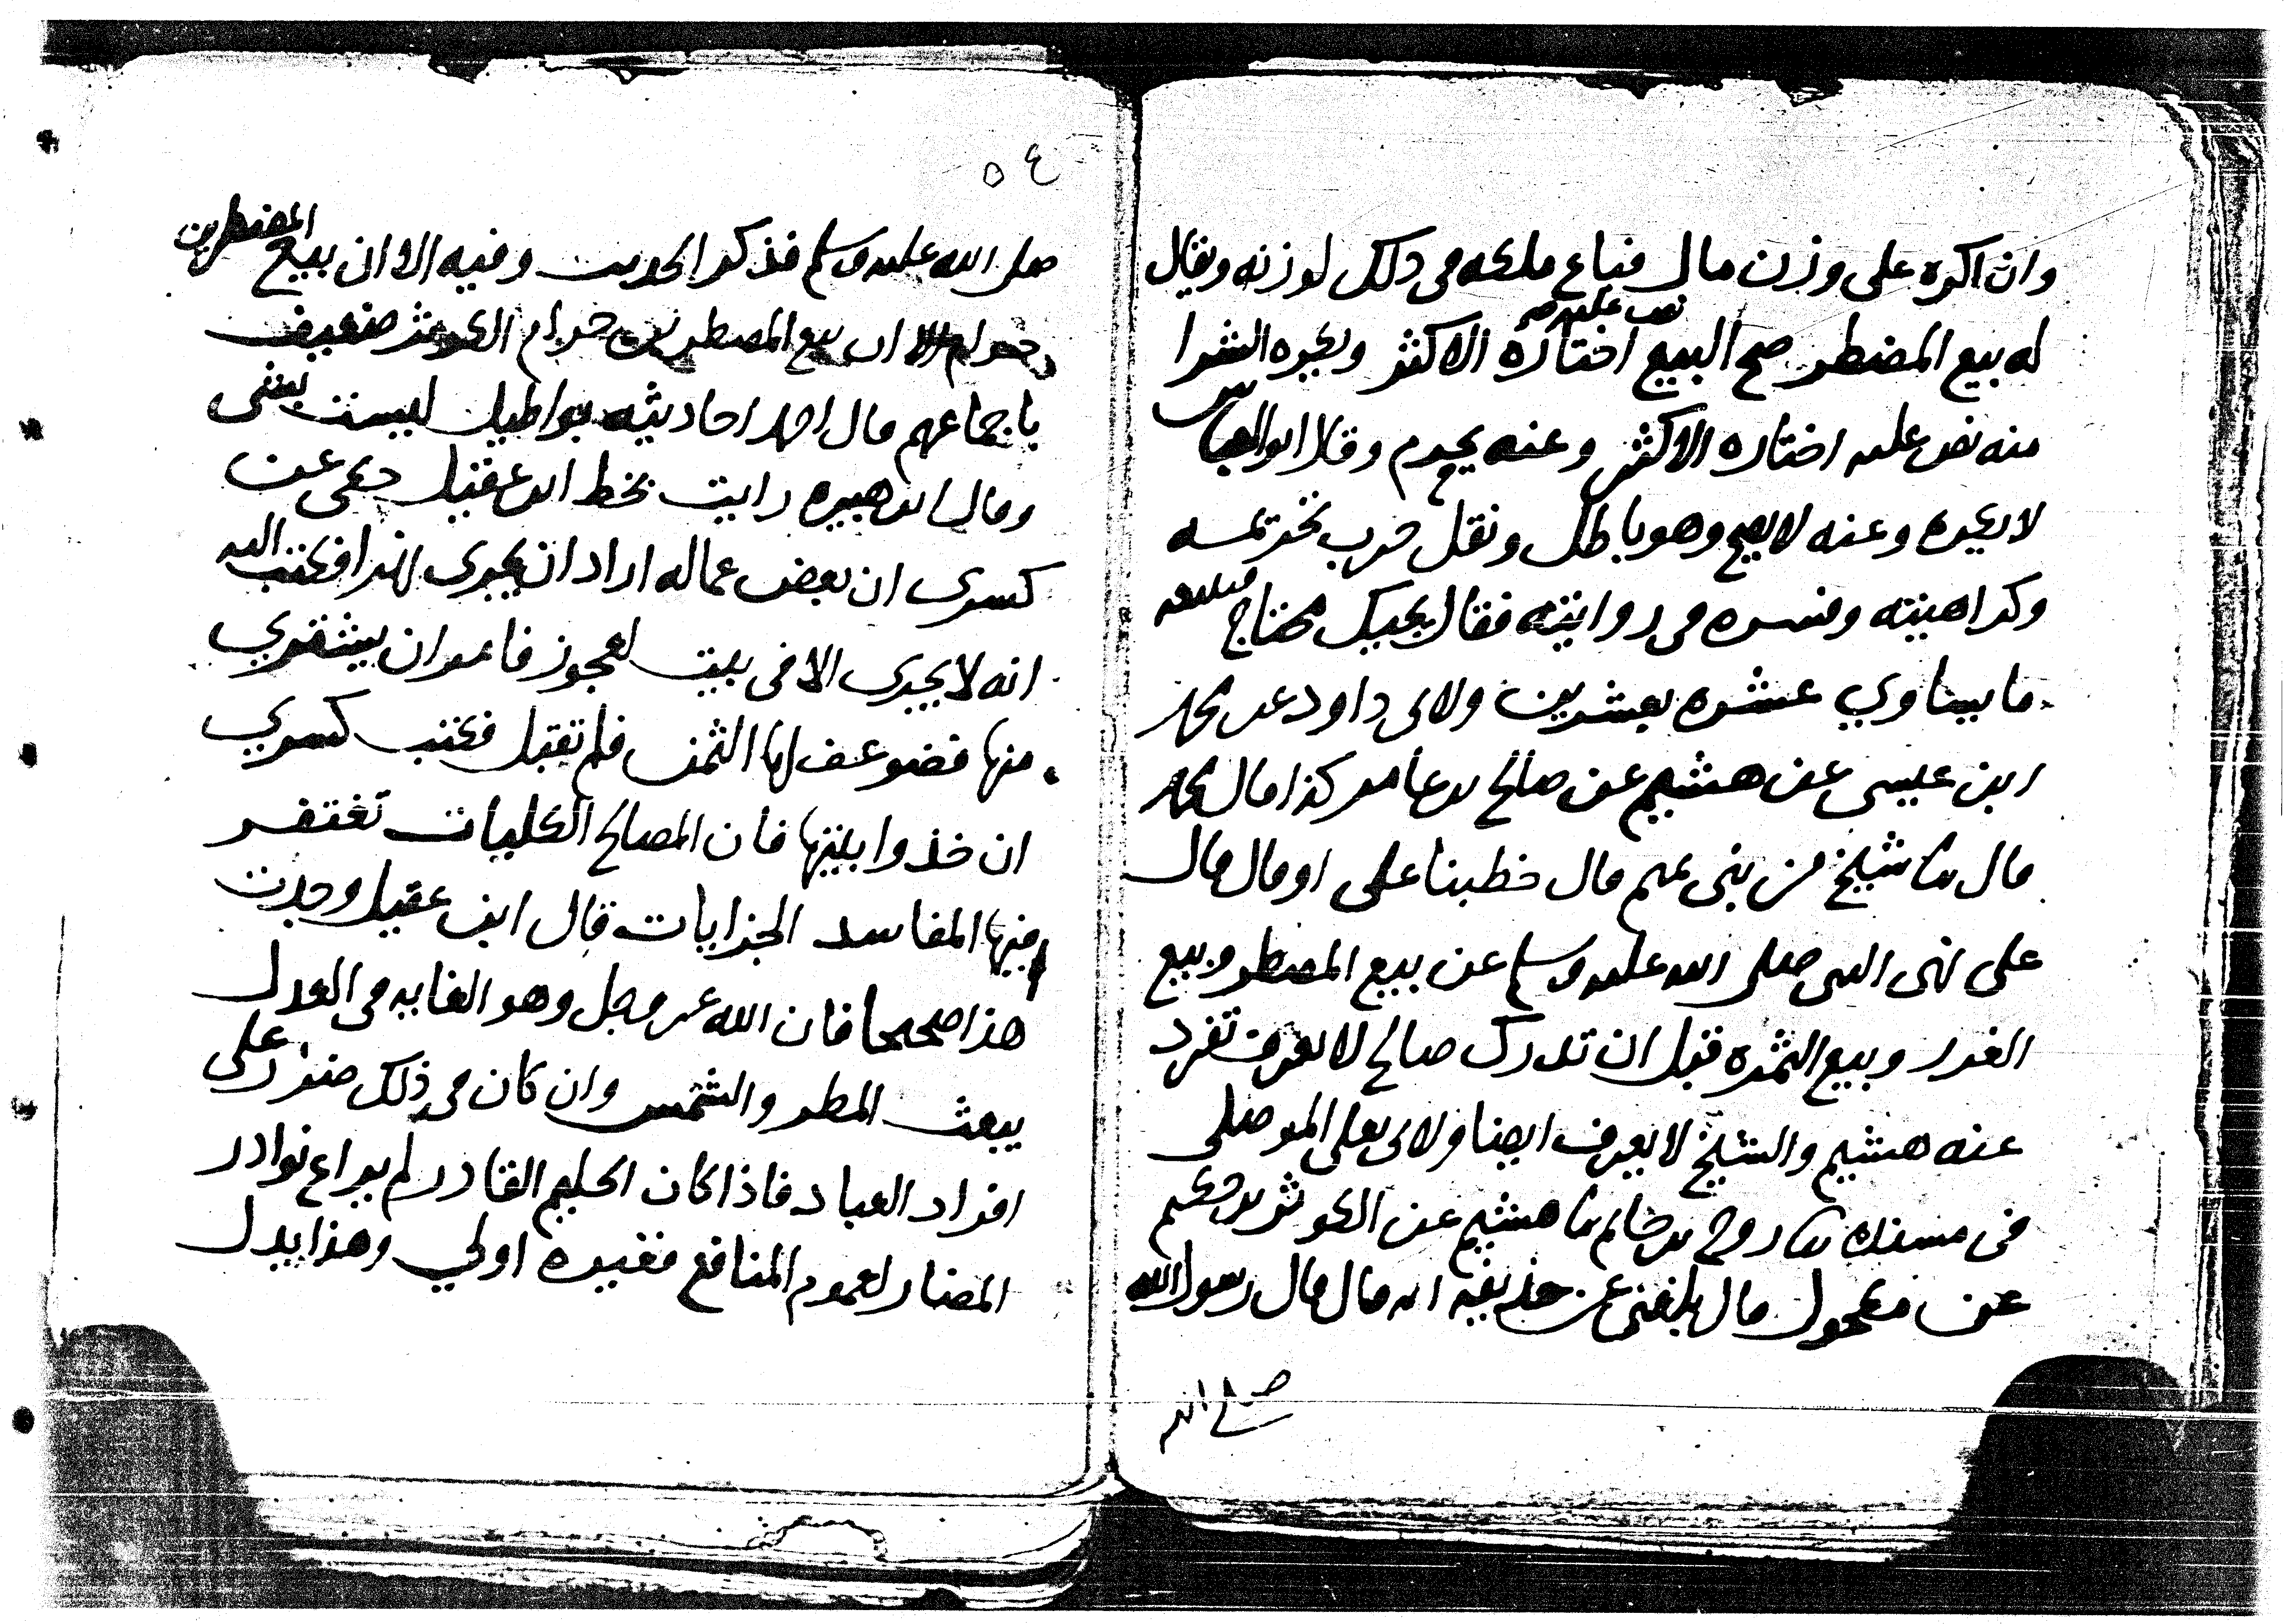 وان اكره على وزن مال فباع ملكه في ذلك لوزنه ويقال
نص عليه
له بيع المضطر صح البيع اختاره الاكثر ويكره الشرا
منه نص عليه اختاره الاكثر وعنه يحرم وقال ابو العباس
لا يكره وعنه لا يصح وهو باطل ونقل حرب تحريمه
وكراهيته وفسره في روايته فقال يجيك محتاج فتبيعه
ما يساوي عشره بعشرين ولابي داود عن محمد
ابن عيسى عن هشيم عن صالح بن عامر كذا قال محمد
قال ثنا شيخ من بني تميم قال خطبنا علي او قال قال
علي نهى النبي صلى الله عليه وسلم عن بيع المضطر وبيع
الغرر وبيع الثمره قبل ان تدرك صالح لا يعرف تفرد
عنه هشيم والشيخ لا يعرف ايضا ولابي يعلى الموصلي
في مسنده ثنا روح بن حاتم ثنا هشيم عن الكوثر بن حكيم
عن مكحول قال بلغني عن حذيفه انه قال قال رسول الله
صلى الله
٥٤
صلى الله عليه وسلم فذكر الحديث وفيه الا ان بيع المضطرين
حرام الا ان بيع المضطرين حرام الكوثر ضعيف
باجماعهم قال احمد احاديثه بواطيل ليست بشي
وقال ابن هبيره رايت بخط ابن عقيل حكى عن
كسرى ان بعض عماله اراد ان يجري نهرا فكتب اليه
انه لا يجري الا في بيت لعجوز فامر ان يشتري
منها فضوعف لها الثمن فلم تقبل فكتب كسري
ان خذوا بيتها فان المصالح الكليات تغتفر
فيها المفاسد الجزايات قال ابن عقيل وجدت
هذا صحيحا فان الله عز وجل وهو الغايه في العدل
يبعث المطر والشمس وان كان في ذلك ضرر على
افراد العباد فاذا كان الحكيم القادر لم يراع نوادر
المضار لعموم المنافع فغيره اولي وهذا يدل